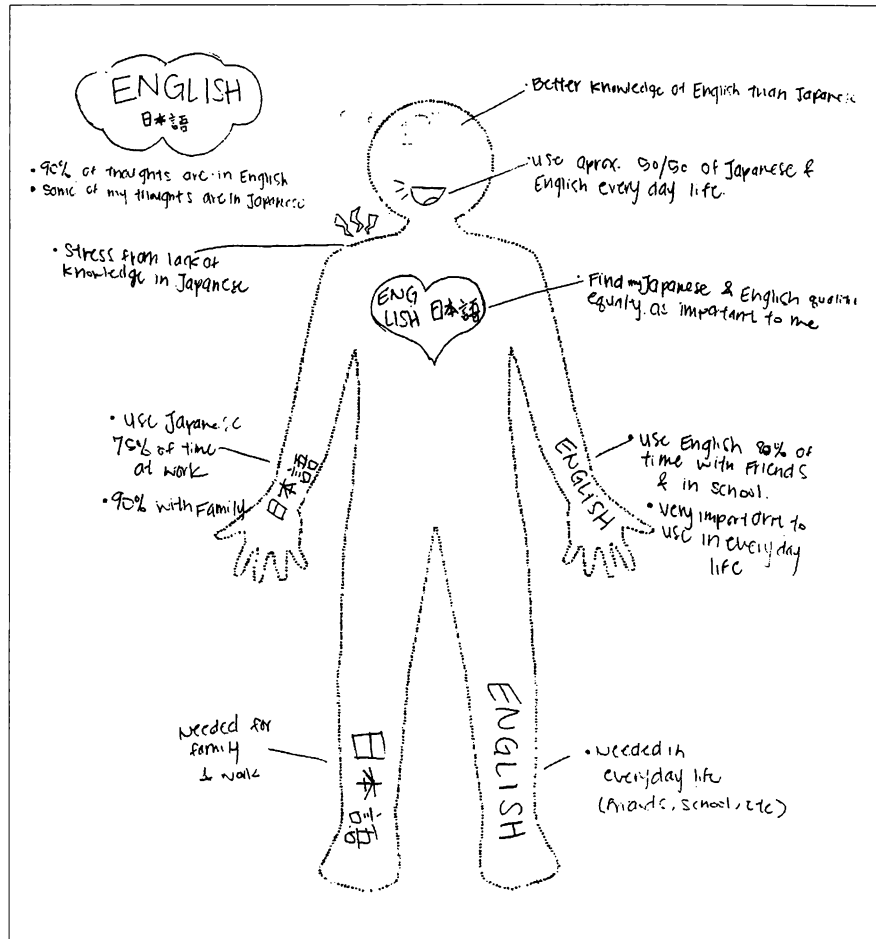 ENGLISH
日本語
• 90% of thoughts are in English
• some of my thoughts are in Japanese
• Better knowledge of English than Japanese
• use aprox. 50/50 of Japanese &
English every day life.
• Stress from lack of
knowledge in Japanese
ENG
LISH 日本語
• Find my Japanese & English
equaly as important to me
• use Japanese
75% of time
at work
• 90% with Family
日本語
ENGLISH
• use English 80% of
time with Friends
& in school.
• very important to
use in everyday
life
Needed for
family
& work
日本語
ENGLISH
• Needed in
everyday life
(friends, school, etc)